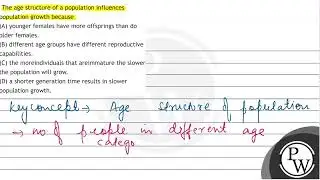 The age structure of a population influences
population growth because
(A) younger females have more offsprings than do
older females.
(B) different age groups have different reproductive
capabilities.
(C) the moreindividuals that areimmature the slower
the population will grow.
(D) a shorter generation time results in slower
population growth.
Key concept → Age structure of population
→ no. of people in different age
catego
PW